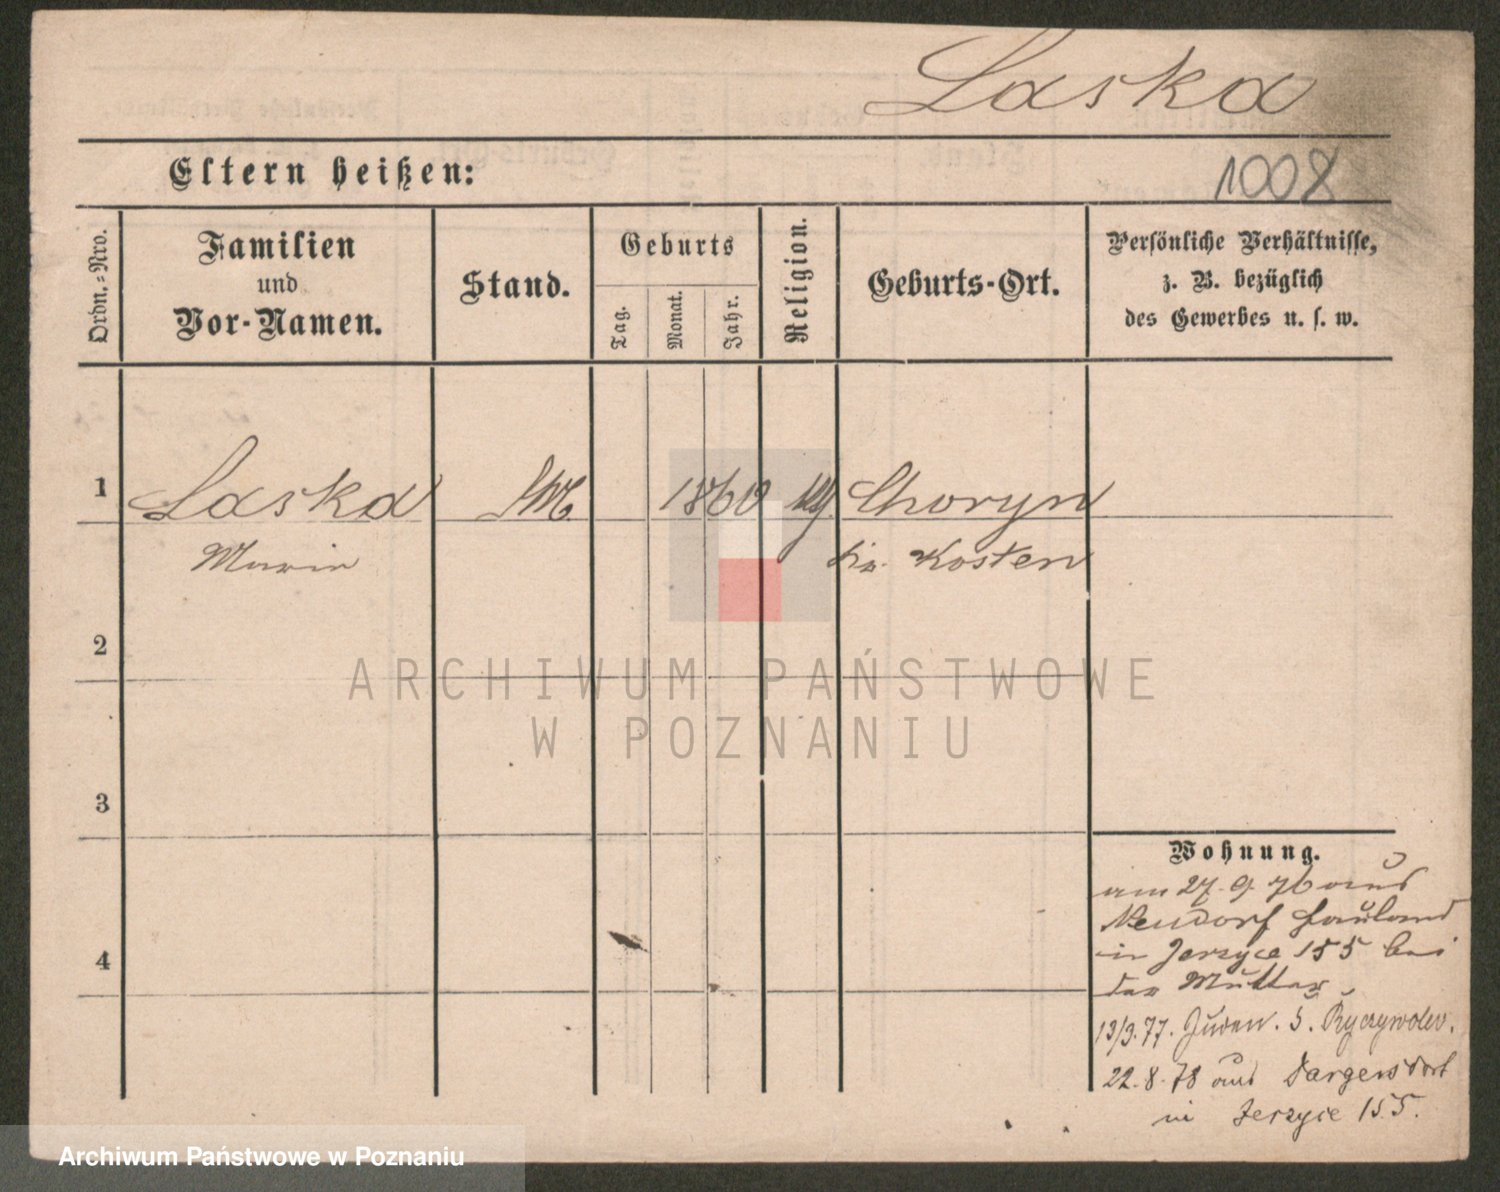 Laska
1008
Eltern heißen:
Ordn.-Nro.
Familien
und
Vor-Namen.
Stand.
Geburts
Tag.
Monat.
Jahr.
Religion.
Geburts-Ort.
Persönliche Verhältnisse,
z. B. bezüglich
des Gewerbes u. s. w.
1 Laska 1860 Choryn
Maria Kr. Kosten
2
ARCHIWUM PAŃSTWOWE
W POZNANIU
3
Wohnung.
am 27. 9. 76 aus
Neudorf Hauland
in Jerzyce 155 bei
4
der Mutter
13/9. 77. Juden. 5. Ryczywolev.
22. 8. 78 aus Dargersdorf
in Jerzyce 155.
Archiwum Państwowe w Poznaniu